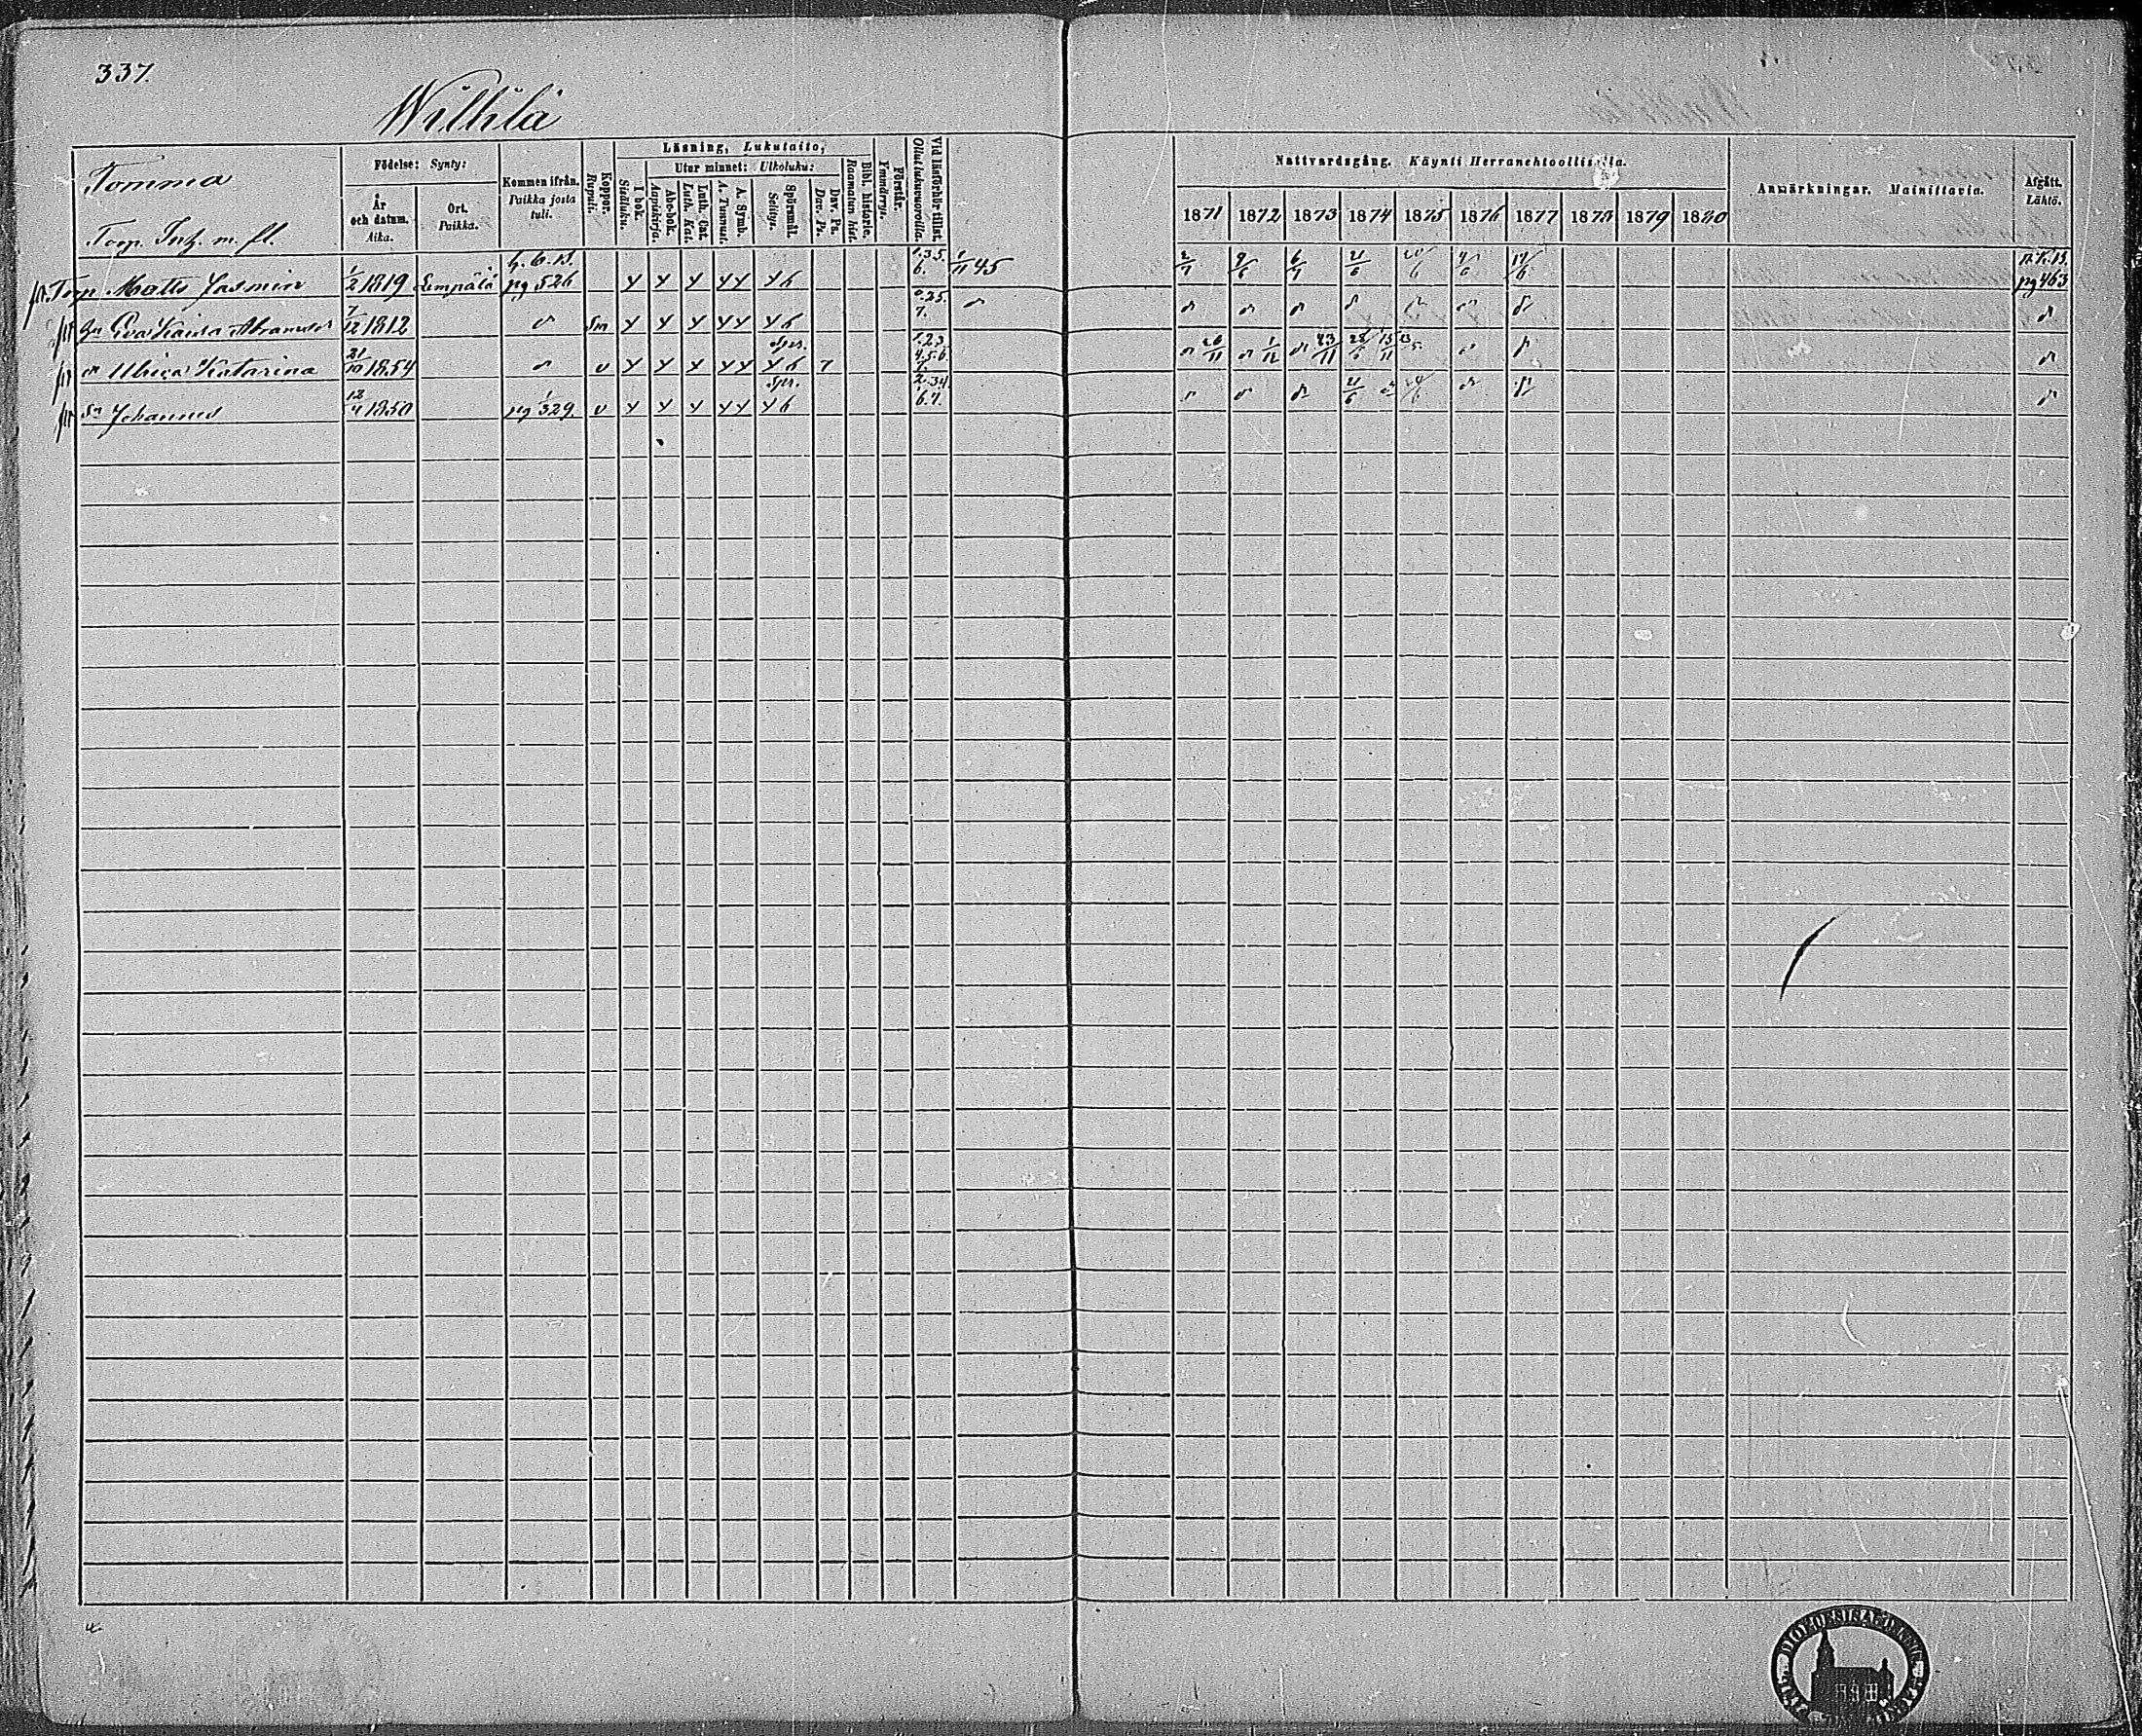 337.
Willilä
Tomma
Torp. Inh. m. fl.
Födelse: Synty:
År och datum. Aika.
Ort. Paikka.
Kommen ifrån. Paikka josta tuli.
Koppor. Rupuli.
Läsning, Lukutaito,
I bok. Sisäluku.
Utur minnet: Ulkoluku:
Abc-bok. Aapiskirja.
Luth. Cat. Luth. Kat.
A. Symb. A. Tunnust.
Spörsmål. Selitys.
Dav. Ps. Dav. Ps.
Bibl. historie. Raamatun hist.
Förstår. Ymmärrys.
Vid läsförhör tillst. Ollut lukuvuoroilla.
Nattvardsgång. Käynti Herranehtoollisella.
1871 1872 1873 1874 1875 1876 1877 1878 1879 1880
Anmärkningar. Mainittavia.
Afgått. Lähtö.
Torp. Matts Jasmin 1/2 1819 Lempälä h. b. B. pg 526 y y y yy y h 1.3.5. 6. 1/11 45 2/7 9/6 6/7 21/6 4/6 17/6 n. k. B. pg 463
Hu Eva Kaisa Abramsdr 7/12 1812 d Sm y y y yy y h 7. d
dr Ulrica Katarina 21/10 1854 d v y y y yy y h 7 Spr. 1.2.3. 4.5.6. 7. 26/11 1/12 23/11 d
Sn Johannes 12/4 1850 pg 329 v y y y yy y h Spr. 2.34. 6.7. 21/6 d